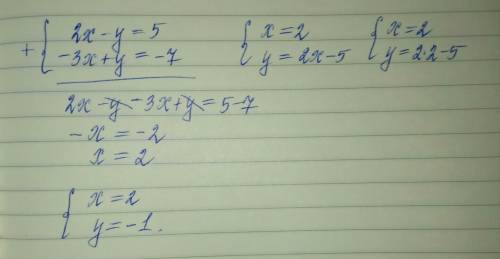 + { 2x - y = 5
-3x + y = -7
2x - y - 3x + y = 5 - 7
-x = -2
x = 2
{ x = 2
y = -1.
{ x = 2
y = 2x - 5
{ x = 2
y = 2·2 - 5